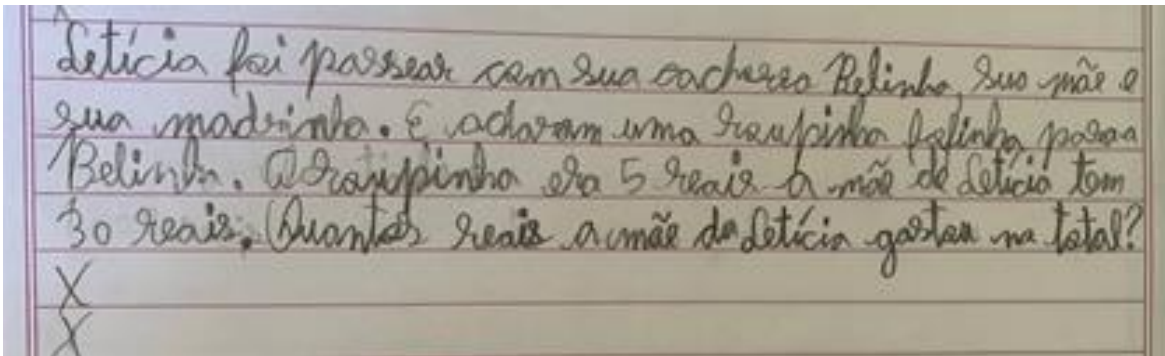 Letícia foi passear com sua cachorra Belinha, sua mãe e
sua madrinha. E acharam uma roupinha fofinha para a
Belinha. A roupinha era 5 reais a mãe de Letícia tem
30 reais. Quantos reais a mãe da Letícia gastou no total?
X
X